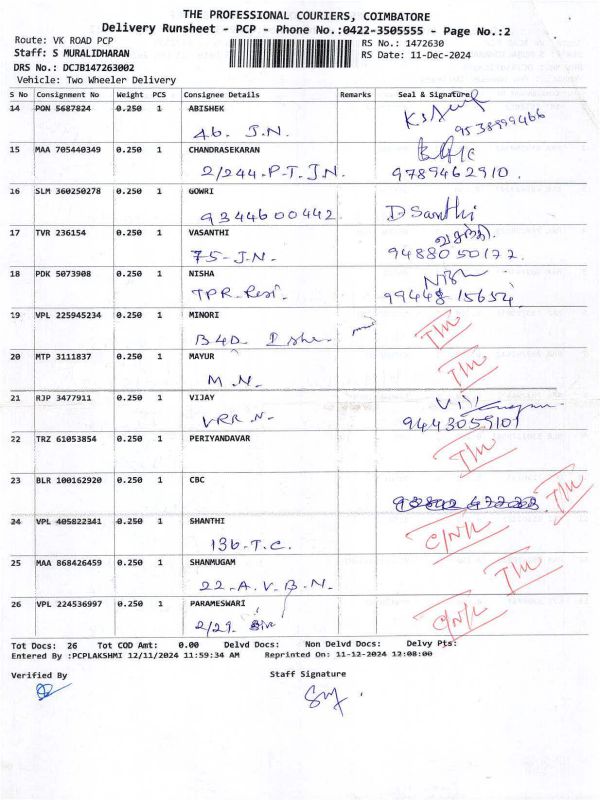 THE PROFESSIONAL COURIERS, COIMBATORE
Delivery Runsheet - PCP - Phone No.:0422-3505555 - Page No.:2
Route: VK ROAD PCP RS No.: 1472630
Staff: S MURALIDHARAN RS Date: 11-Dec-2024
DRS No.: DCJB147263002
Vehicle: Two Wheeler Delivery
S No Consignment No Weight PCS Consignee Details Remarks Seal & Signature
14 PON 5687824 0.250 1 ABISHEK
46. J.N. 9538999466
15 MAA 705440349 0.250 1 CHANDRASEKARAN
2/244-P-T.J.N. 9789462910
16 SLM 360250278 0.250 1 GOWRI
9344600442 D Santhi
17 TVR 236154 0.250 1 VASANTHI வசந்தி
75-J.N. 9488050172
18 PDK 5073908 0.250 1 NISHA
TPR-Resi. 99448 15654
19 VPL 225945234 0.250 1 MINORI
B40 T/N
20 MTP 3111837 0.250 1 MAYUR
M.N. T/N
21 RJP 3477911 0.250 1 VIJAY
VRR.N. 9443059101
22 TRZ 61053854 0.250 1 PERIYANDAVAR
T/N
23 BLR 100162920 0.250 1 CBC
T/N
24 VPL 405822341 0.250 1 SHANTHI
136-T.C. C/N/L
25 MAA 868426459 0.250 1 SHANMUGAM
22-A.V.B.N. T/N
26 VPL 224536997 0.250 1 PARAMESWARI
2/29. C/N/L
Tot Docs: 26 Tot COD Amt: 0.00 Delvd Docs: Non Delvd Docs: Delvy Pts:
Entered By :PCPLAKSHMI 12/11/2024 11:59:34 AM Reprinted On: 11-12-2024 12:08:00
Verified By Staff Signature